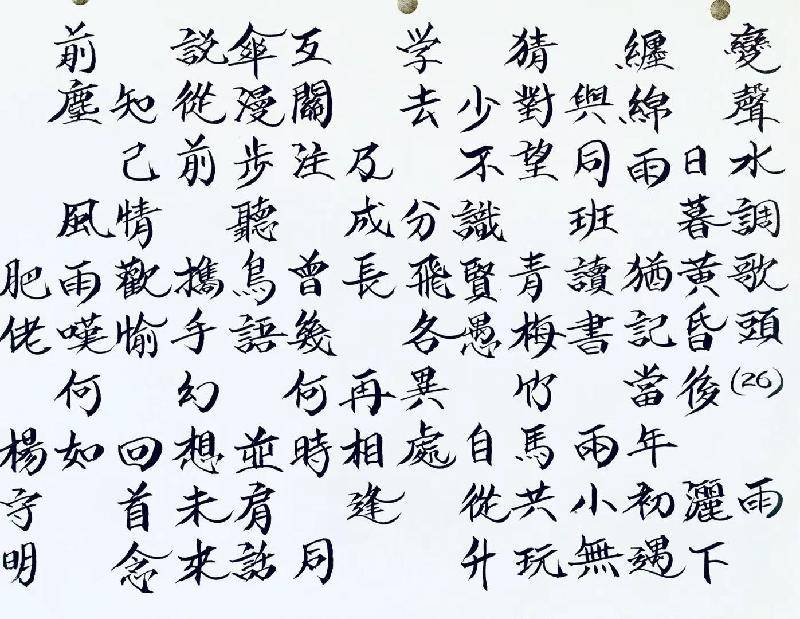 變聲水調歌頭(26) 雨
日暮黃昏後 灑下
纏綿雨 猶記當年初遇
與同班讀書 兩小無
猜對望 青梅竹馬共玩
少不識賢愚 自從升
学去 分飛各異處
及成長 再相逢
互關注 曾幾何時 同
傘漫步 聽鳥語 並肩話
説從前 攜手幻想未來
知己情歡愉 回首念
前塵 風雨嘆何如
肥佬 楊守明